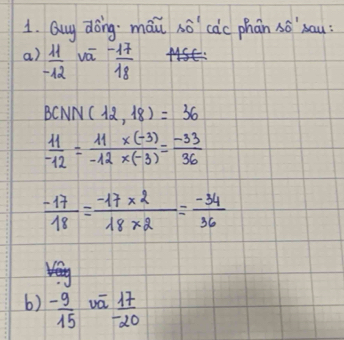 1. Quy đồng mẫu số các phân số sau:
a) 11/-12 và -17/18 MSC:
BCNN (12, 18) = 36
11/-12 = 11 x (-3)/-12 x (-3) = -33/36
-17/18 = -17 x 2/18 x 2 = -34/36
Vậy
b) -9/15 và 17/-20